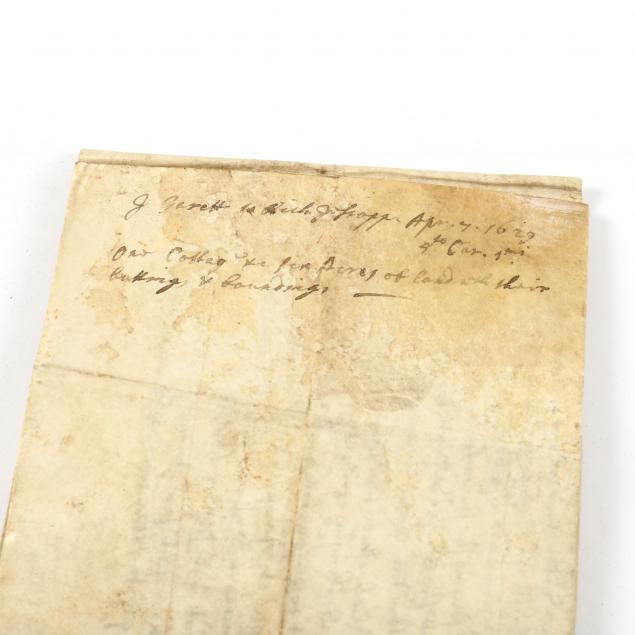 J Garett to Rich Tropp. Apr. 7. 1629
5to Car. 1mi
One Cottag &c six Acres of land wth their
buttings & boundings